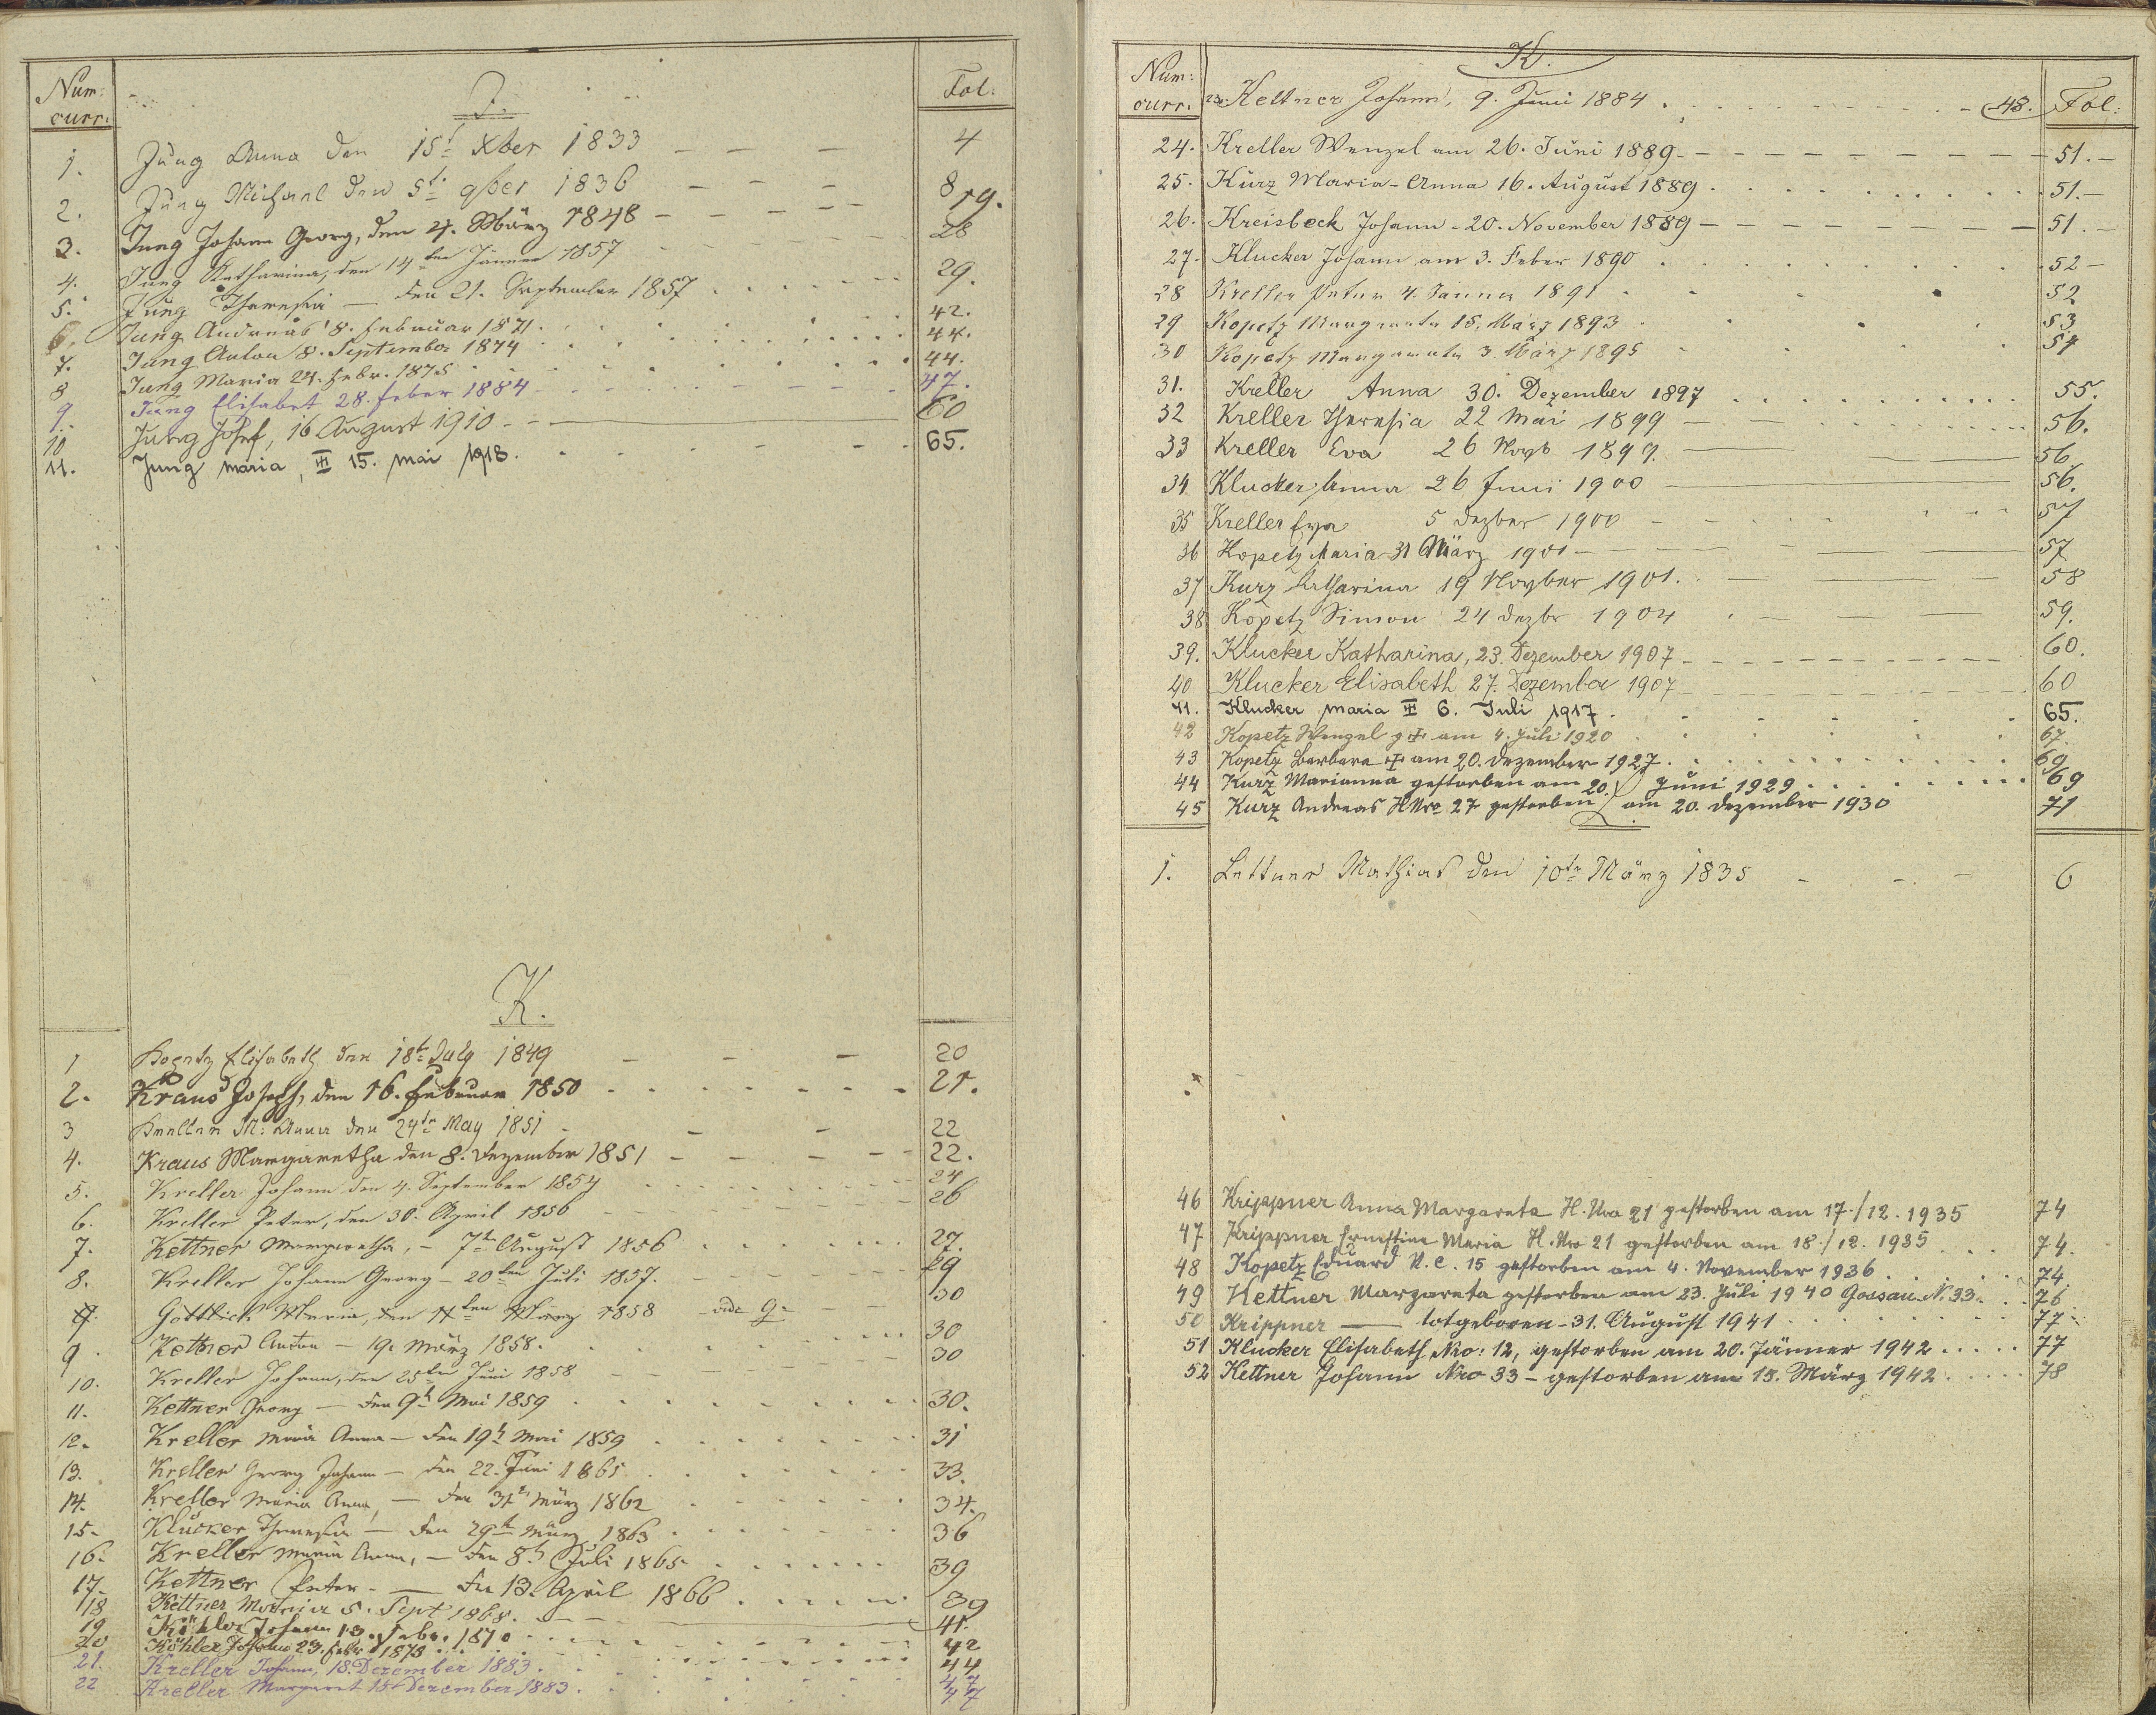 Num: curr:
J.
Fol:
1. Jung Anna den 15t Xber 1833 4
2. Jung Michael den 5t 9ber 1836 8
3. Jung Johann Georg, den 4. März 1848 19.
4. Jung Katharina, den 14ten Jänner 1857 28
5. Jung Theresia den 21. September 1857 29.
6. Jung Andreas 8. Februar 1871. 42.
7. Jung Anton 8. September 1874 44.
8 Jung Maria 24. Febr. 1875 44.
9. Jung Elisabet 28. Feber 1884 47.
10 Jung Josef, 16 August 1910 60
11. Jung Maria, 15. Mai 1918. 65.
K.
1 Kopetz Elisabeth den 18t July 1849 20
2. Kraus Joseph, den 16. Februar 1850 21.
3 Kreller M: Anna den 24tn May 1851 22
4. Kraus Margaretha den 8. Dezember 1851 22.
5. Kreller Johann den 4. September 1854 24
6. Kreller Peter, den 30. April 1856 26
7. Kettner Margaretha, 7t August 1856 27.
8. Kreller Johann Georg 20ten Juli 1857. 29
9. Göttlich Maria, den 11ten März 1858 vide G. 30
9. Kettner Anton 19. März 1858. 30
10. Kreller Johann, den 25ten Juni 1858 30
11. Kettner Georg den 9t Mai 1859 30.
12. Kreller Maria Anna den 19t Mai 1859 31
13. Kreller Georg Johann den 22. Juni 1861 33.
14. Kreller Maria Anna, den 31t März 1862 34.
15. Klucker Theresia den 29t März 1863 36
16. Kreller Maria Anna, den 8t Juli 1865 39
17. Kettner Peter den 13. April 1866 39
18 Kettner Maria 5. Sept 1868. 41.
19 Köhler Johann 13. Febr. 1870 42
20 Köhler Johann 23. Febr. 1873 44
21. Kreller Johann, 18. Dezember 1883. 47
22 Kreller Margaret 18 Dezember 1883. 47
Num: curr:
K.
Fol:
23. Kettner Johann, 9. Juni 1884. 48.
24. Kreller Wenzel am 26. Juni 1889 51.
25. Kurz Maria-Anna 16. August 1889. 51.
26. Kreisbeck Johann 20. November 1889 51.
27. Klucker Johann am 3. Feber 1890 52
28 Kreller Peter 4. Janner 1891 52
29 Kopetz Margareta 15. März 1893 53
30 Kopetz Margareta 3. März 1895 54
31. Kreller Anna 30. Dezember 1897 55.
32 Kreller Theresia 22 Mai 1899 56.
33 Kreller Eva 26 Novb 1899. 56
34 Klucker Anna 26 Juni 1900 56.
35 Kreller Eva 5 Dezber 1900 57
36 Kopetz Maria 31 März 1901 57
37 Kurz Katharina 19 Novber 1901. 58
38 Kopetz Simon 24 Dezbr 1904 59.
39. Klucker Katharina, 23. Dezember 1907 60.
40 Klucker Elisabeth 27. Dezember 1907 60
41. Klucker Maria 6. Juli 1917. 65.
42 Kopetz Wenzel am 4. Juli 1920 67.
43 Kopetz Barbara am 20. Dezember 1927. 69
44 Kurz Marianna gestorben am 20. Juni 1929 69
45 Kurz Andreas HNro 27 gestorben am 20. Dezember 1930 71
L.
1. Lettner Mathias den 10tn März 1835 6
46 Krippner Anna Margareta H. Nro 21 gestorben am 17./12. 1935 74
47 Krippner Ernestine Maria H. Nro 21 gestorben am 18./12. 1935 74.
48 Kopetz Eduard N. C. 15 gestorben am 4. November 1936 74.
49 Kettner Margareta gestorben am 23. Juli 1940 Gossau N. 33. 76
50 Krippner totgeboren 31. August 1941 77
51 Klucker Elisabeth Nro: 12, gestorben am 20. Jänner 1942 77
52 Kettner Johann Nro 33 gestorben am 15. März 1942 78